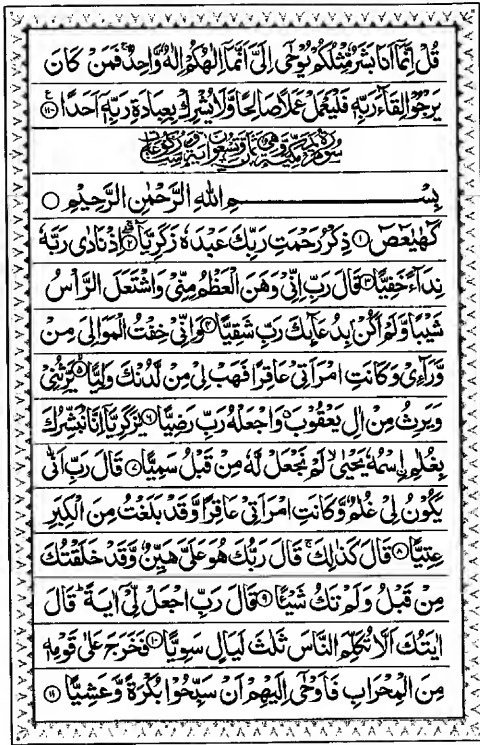 قُلْ اِنَّمَاۤ اَنَا بَشَرٌ مِّثْلُكُمْ يُوْحٰۤى اِلَيَّ اَنَّمَاۤ اِلٰهُكُمْ اِلٰهٌ وَّاحِدٌ ۚ فَمَنْ كَانَ
يَرْجُوْا لِقَآءَ رَبِّهٖ فَلْيَعْمَلْ عَمَلًا صَالِحًا وَّلَا يُشْرِكْ بِعِبَادَةِ رَبِّهٖۤ اَحَدًا ﴿۱۱۰﴾
سُوْرَةُ مَرْيَمَ مَكِّيَّةٌ وَّهِيَ ثَمَانٌ وَّتِسْعُوْنَ اٰيَةً وَّسِتُّ رُكُوْعَاتٍ
بِسْمِ اللهِ الرَّحْمٰنِ الرَّحِيْمِ ○
كٓهٰيٰعٓصٓ ﴿۱﴾ ذِكْرُ رَحْمَتِ رَبِّكَ عَبْدَهٗ زَكَرِيَّا ﴿۲﴾ اِذْ نَادٰى رَبَّهٗ
نِدَآءً خَفِيًّا ﴿۳﴾ قَالَ رَبِّ اِنِّيْ وَهَنَ الْعَظْمُ مِنِّيْ وَاشْتَعَلَ الرَّاْسُ
شَيْبًا وَّلَمْ اَكُنْۢ بِدُعَآئِكَ رَبِّ شَقِيًّا ﴿۴﴾ وَاِنِّيْ خِفْتُ الْمَوَالِيَ مِنْ
وَّرَآءِيْ وَكَانَتِ امْرَاَتِيْ عَاقِرًا فَهَبْ لِيْ مِنْ لَّدُنْكَ وَلِيًّا ﴿۵﴾ يَّرِثُنِيْ
وَيَرِثُ مِنْ اٰلِ يَعْقُوْبَ ۖ وَاجْعَلْهُ رَبِّ رَضِيًّا ﴿۶﴾ يٰزَكَرِيَّاۤ اِنَّا نُبَشِّرُكَ
بِغُلٰمِ ۟اسْمُهٗ يَحْيٰى ۙ لَمْ نَجْعَلْ لَّهٗ مِنْ قَبْلُ سَمِيًّا ﴿۷﴾ قَالَ رَبِّ اَنّٰى
يَكُوْنُ لِيْ غُلٰمٌ وَّكَانَتِ امْرَاَتِيْ عَاقِرًا وَّقَدْ بَلَغْتُ مِنَ الْكِبَرِ
عِتِيًّا ﴿۸﴾ قَالَ كَذٰلِكَ ۚ قَالَ رَبُّكَ هُوَ عَلَيَّ هَيِّنٌ وَّقَدْ خَلَقْتُكَ
مِنْ قَبْلُ وَلَمْ تَكُ شَيْـًٔا ﴿۹﴾ قَالَ رَبِّ اجْعَلْ لِّيْۤ اٰيَةً ؕ قَالَ
اٰيَتُكَ اَلَّا تُكَلِّمَ النَّاسَ ثَلٰثَ لَيَالٍ سَوِيًّا ﴿۱۰﴾ فَخَرَجَ عَلٰى قَوْمِهٖ
مِنَ الْمِحْرَابِ فَاَوْحٰۤى اِلَيْهِمْ اَنْ سَبِّحُوْا بُكْرَةً وَّعَشِيًّا ﴿۱۱﴾